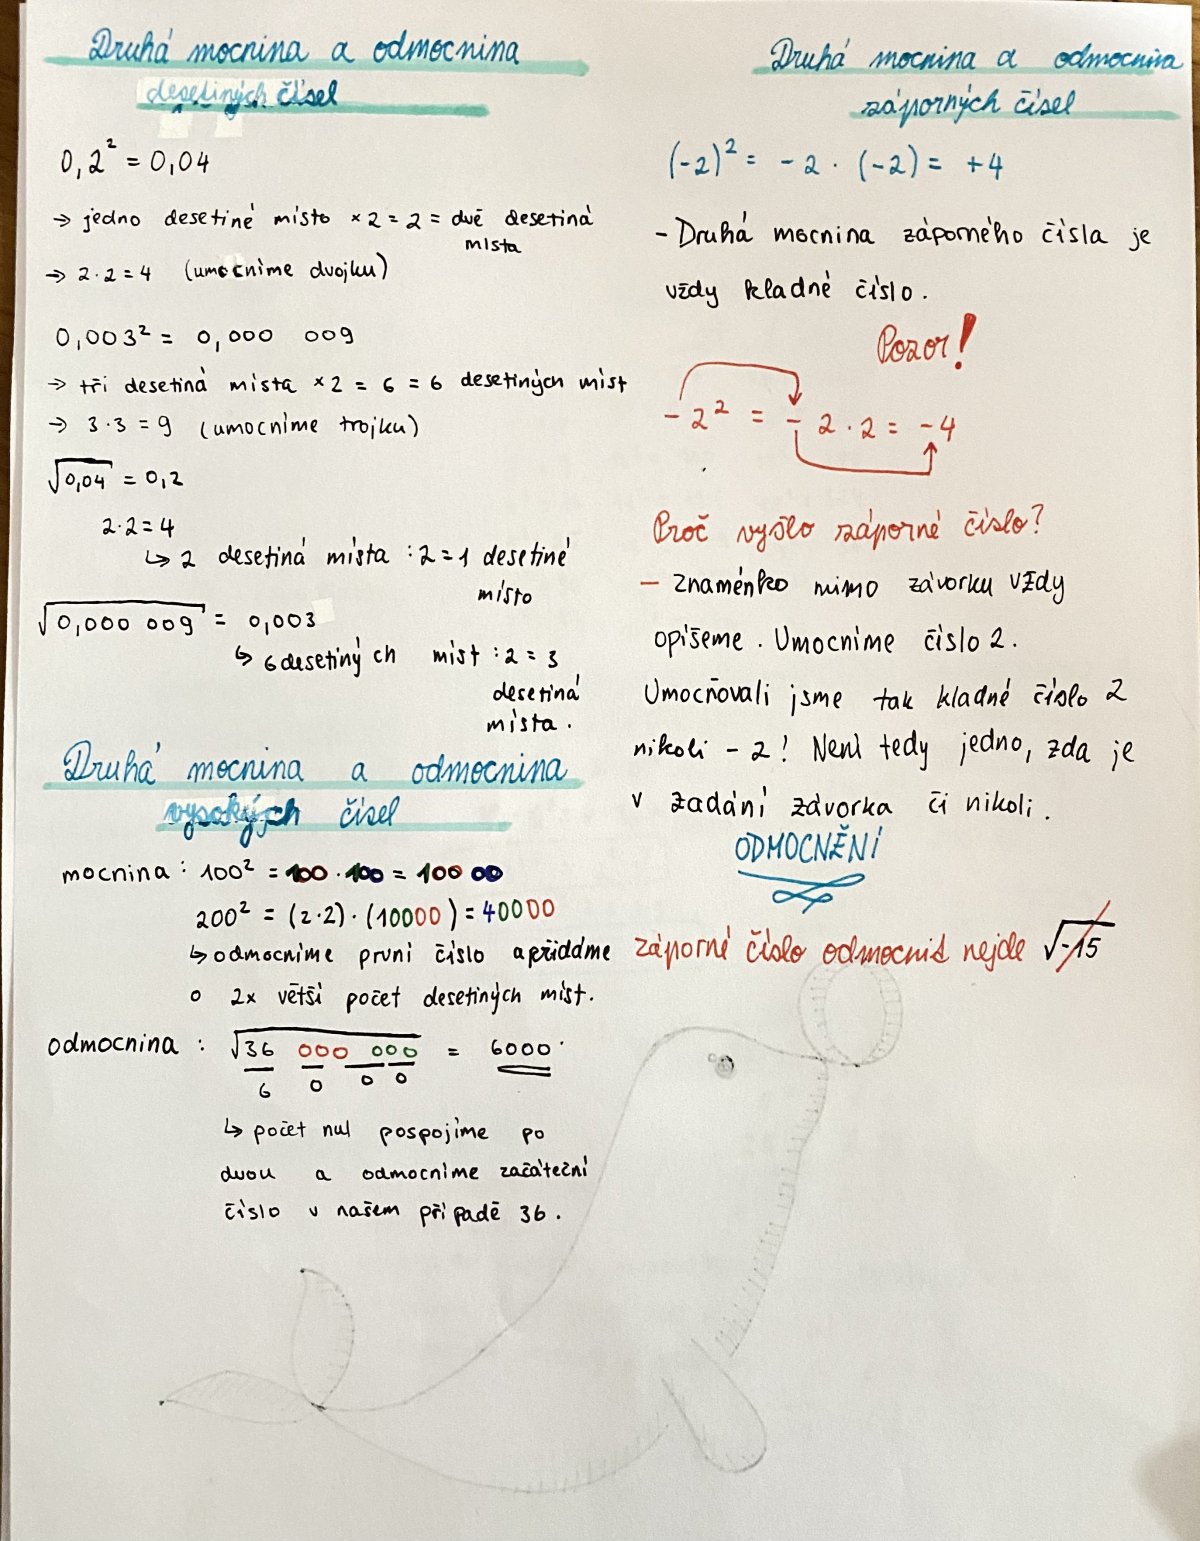 Druhá mocnina a odmocnina
desetiných čísel
0,2² = 0,04
→ jedno desetiné místo ×2 = 2 = dvě desetiná
místa
→ 2·2=4 (umocníme dvojku)
0,003² = 0,000 009
→ tři desetiná místa ×2 = 6 = 6 desetiných míst
→ 3·3=9 (umocníme trojku)
√0,04 = 0,2
2·2=4
↳ 2 desetiná místa :2=1 desetiné
místo
√0,000 009 = 0,003
↳ 6 desetiných míst :2=3
desetiná
místa.
Druhá mocnina a odmocnina
vysokých čísel
mocnina: 100² = 100 · 100 = 100 00
200² = (2·2)·(10000) = 40000
↳ odmocníme první číslo a přidáme
o 2x větší počet desetiných míst.
odmocnina: √36 000 000 = 6000
6 0 0 0
↳ počet nul pospojíme po
dvou a odmocníme začáteční
číslo v našem případě 36.
Druhá mocnina a odmocnina
záporných čísel
(-2)² = -2 · (-2) = +4
- Druhá mocnina záporného čísla je
vždy kladné číslo.
Pozor!
-2² = -2·2 = -4
Proč vyšlo záporné číslo?
- znaménko mimo závorku vždy
opíšeme. Umocníme číslo 2.
Umocňovali jsme tak kladné číslo 2
nikoli -2! Není tedy jedno, zda je
v zadání závorka či nikoli.
ODMOCNĚNÍ
záporné číslo odmocnit nejde √-15